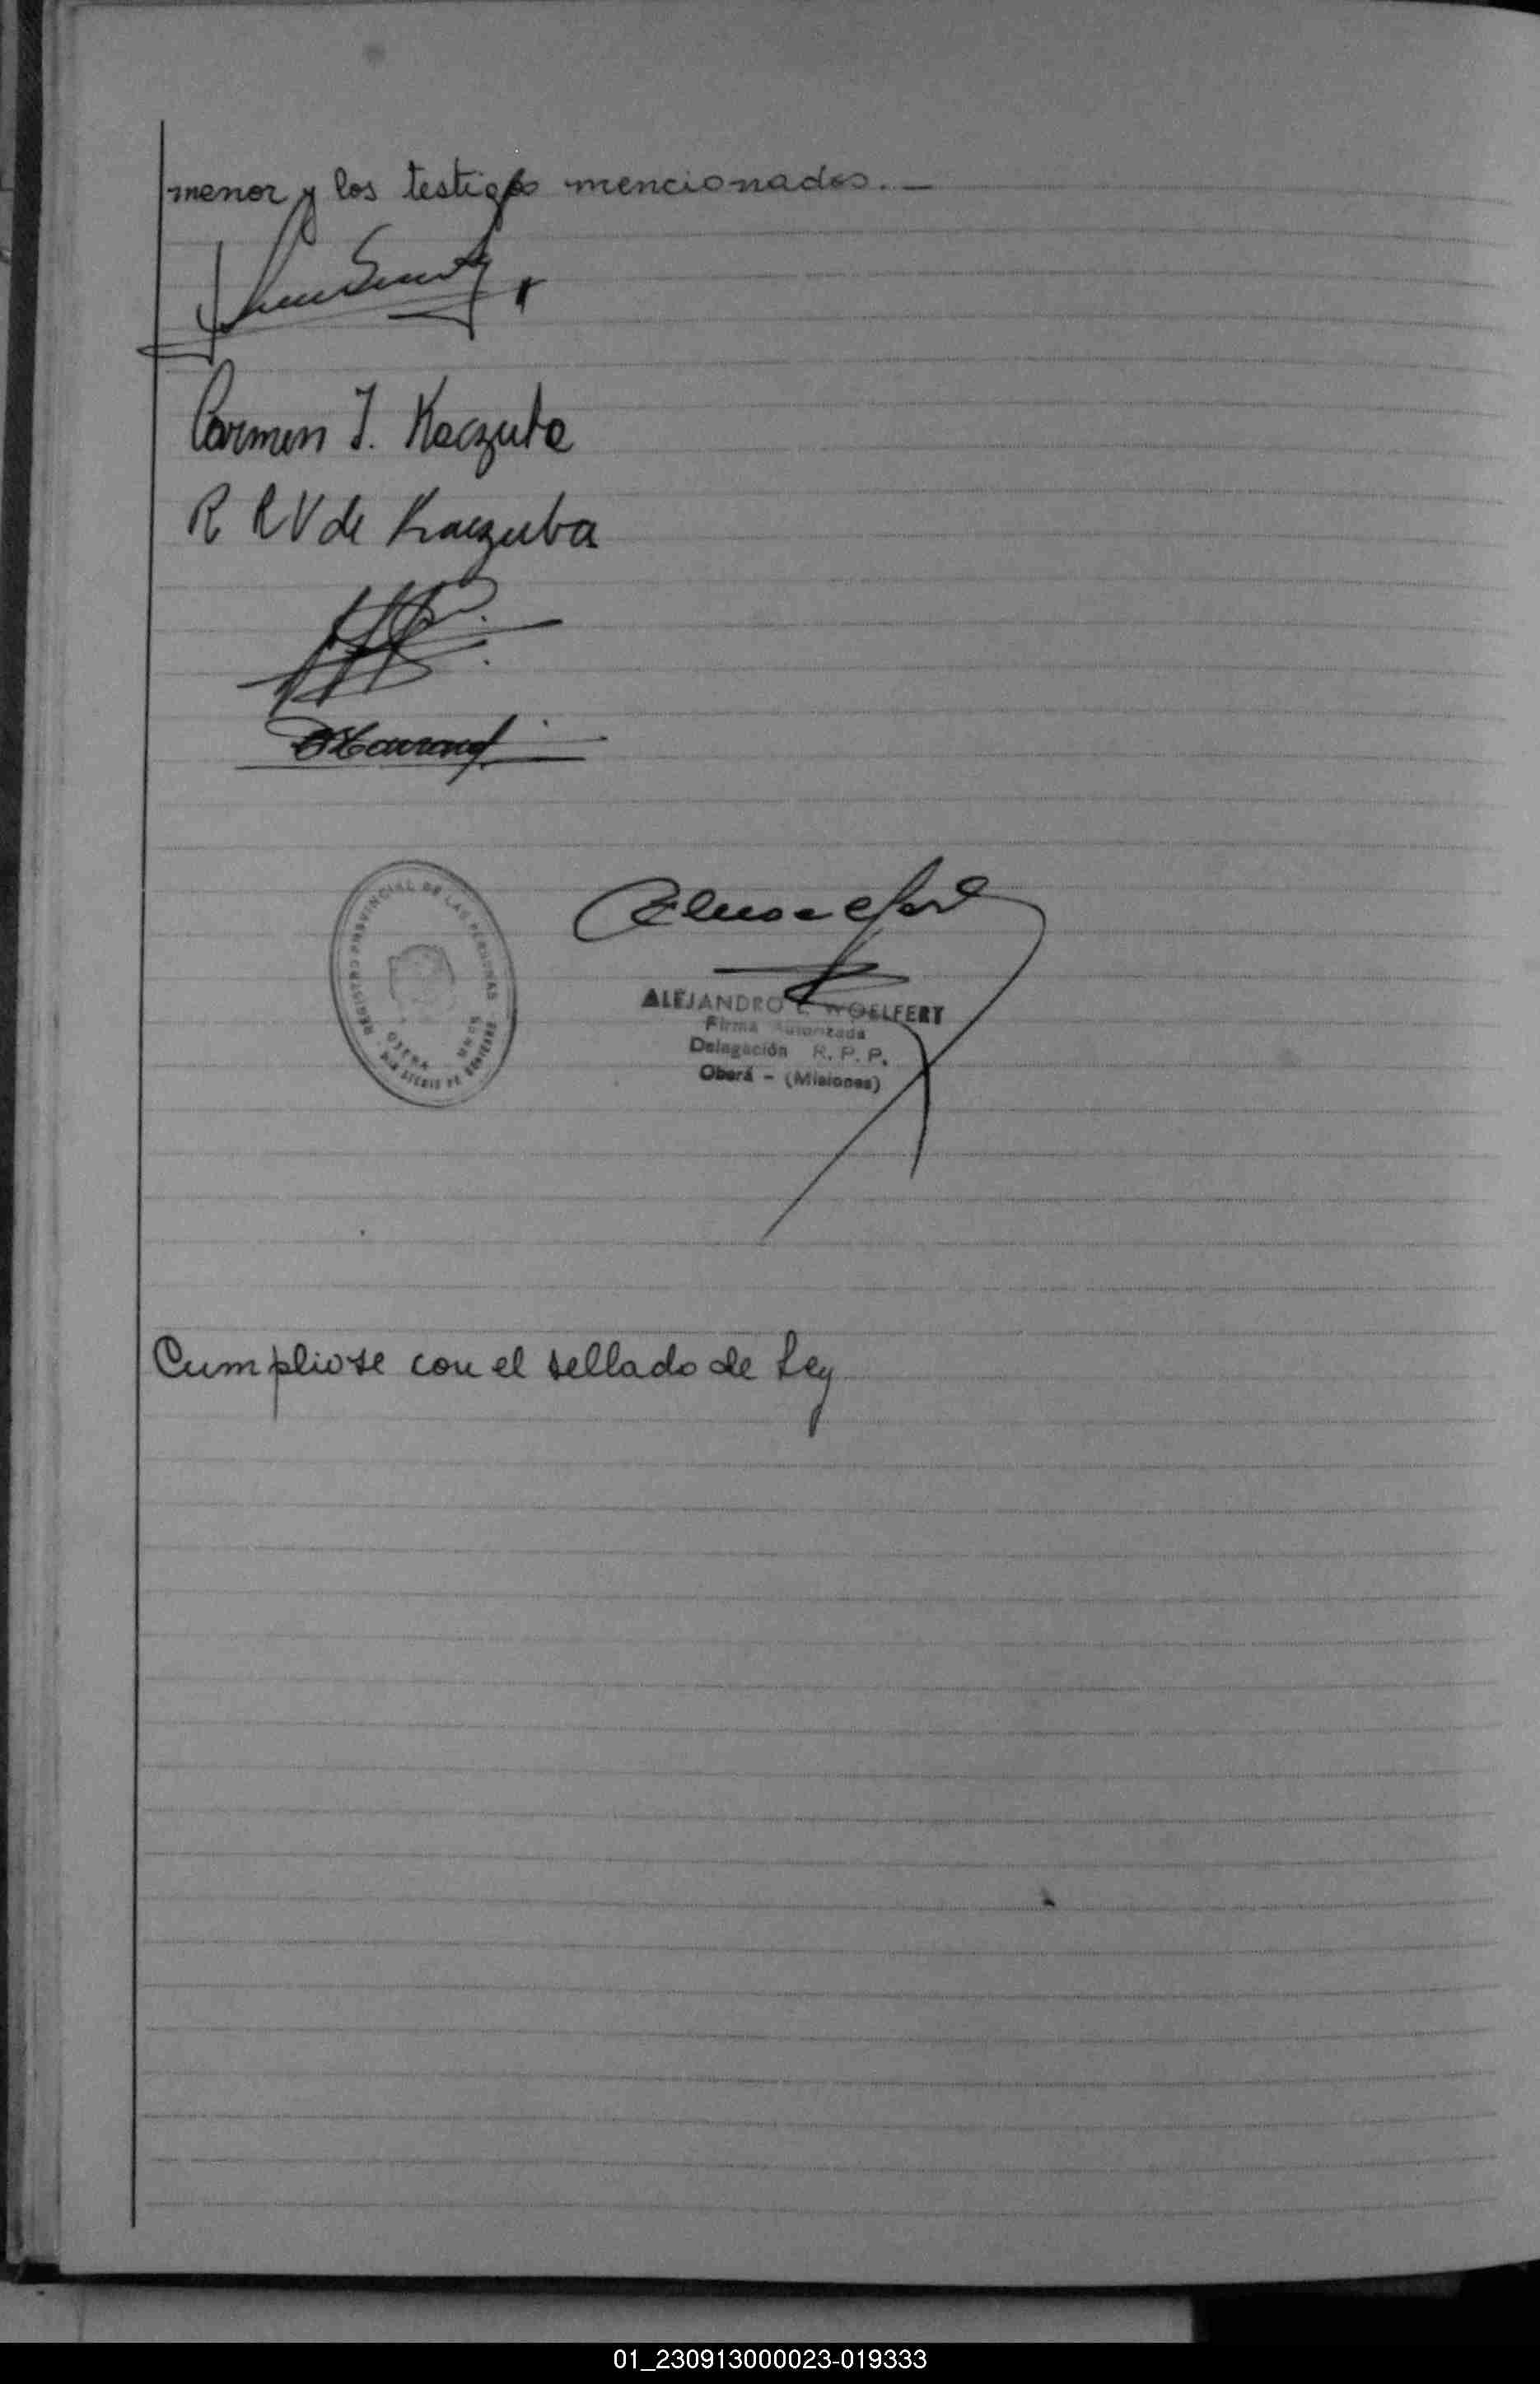 menor y los testigos mencionados. —
Carmen I. Kaczuba
R R V de Kaczuba
REGISTRO PROVINCIAL DE LAS PERSONAS
OBERA MNES
MINISTERIO DE GOBIERNO
ALEJANDRO E. WOELFERT
Firma Autorizada
Delegación R. P. P.
Oberá - (Misiones)
Cumpliose con el sellado de Ley
01_230913000023-019333